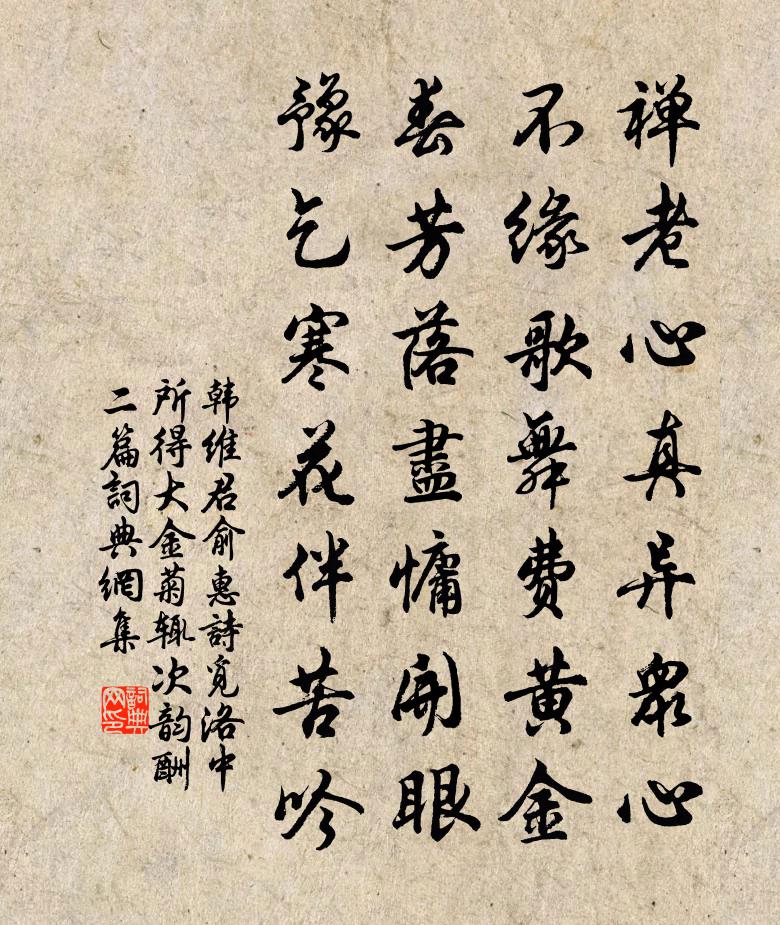 禅老心真异眾心
不缘歌舞费黄金
春芳落盡慵開眼
豫乞寒花伴苦吟
韩维君俞惠詩觅洛中
所得大金菊辄次韵酬
二篇詞典網集
詞典
网印